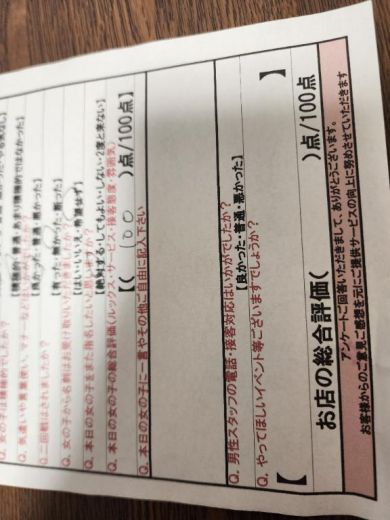 Q. 女の子は積極的でしたか？
【積極的・普通・あまり積極的ではなかった】
Q. 気遣いや言葉使い、マナーなどは
【良かった・普通・悪かった】
Q. 二回戦はされましたか？
【有った・無かった・断った】
Q. 女の子から名刺はお受け取りいただきましたか？
【はい・いいえ・希望せず】
Q. 本日の女の子をまた指名したいと思いますか？
【絶対する・してもよい・しない・2度と来ない】
Q. 本日の女の子の総合評価(ルックス・サービス・接客態度・雰囲気)
【( 100 )点/100点】
Q. 本日の女の子に一言やその他ご自由に記入下さい
Q. 男性スタッフの電話・接客対応はいかがでしたか？
【良かった・普通・悪かった】
Q. やってほしいイベント等ございますでしょうか？
【 】
お店の総合評価( )点/100点
アンケートご回答いただきまして、ありがとうございます。
お客様からのご意見ご感想を元にご提供サービスの向上に努めさせていただきます